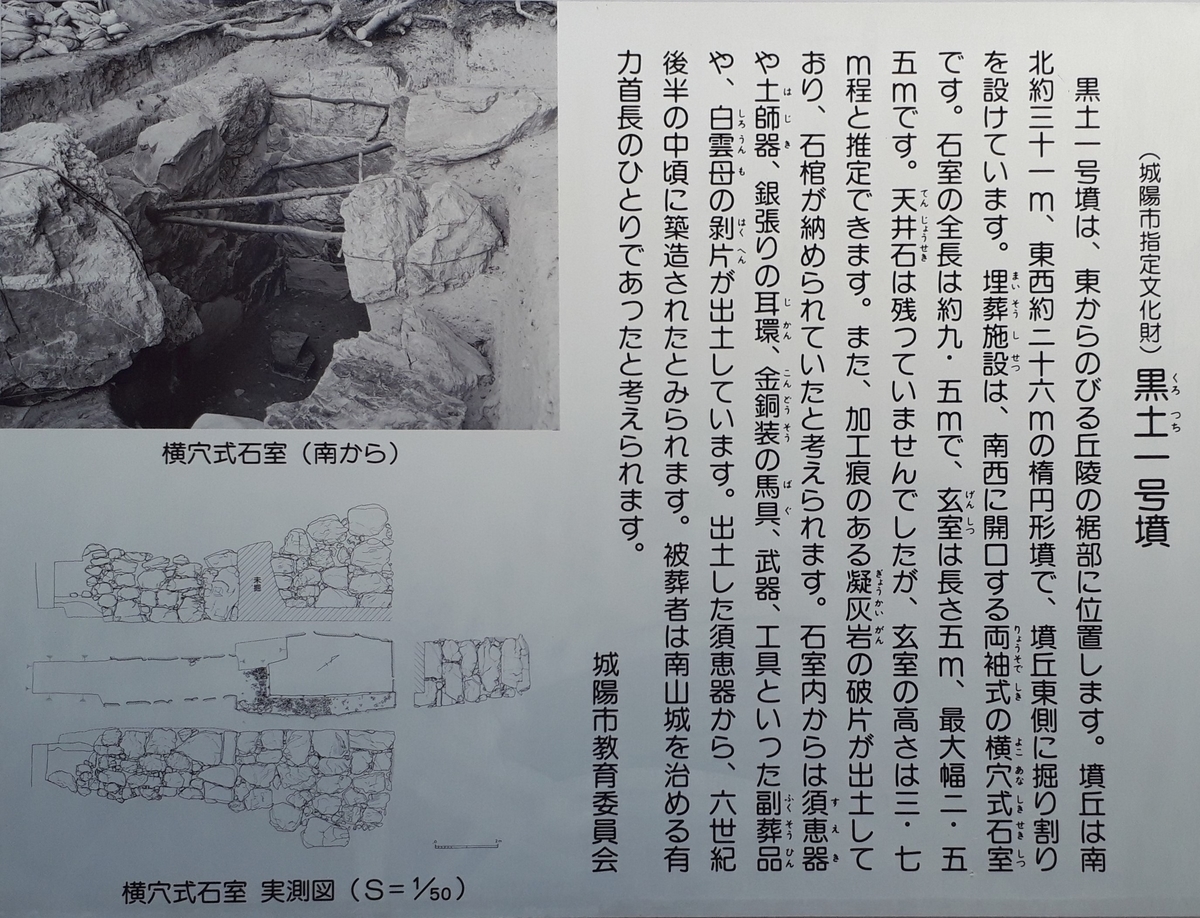 （城陽市指定文化財）黒土一号墳
黒土一号墳は、東からのびる丘陵の裾部に位置します。墳丘は南
北約三十一m、東西約二十六mの楕円形墳で、墳丘東側に掘り割り
を設けています。埋葬施設は、南西に開口する両袖式の横穴式石室
です。石室の全長は約九・五mで、玄室は長さ五m、最大幅二・五
五mです。天井石は残っていませんでしたが、玄室の高さは三・七
m程と推定できます。また、加工痕のある凝灰岩の破片が出土して
おり、石棺が納められていたと考えられます。石室内からは須恵器
や土師器、銀張りの耳環、金銅装の馬具、武器、工具といった副葬品
や、白雲母の剥片が出土しています。出土した須恵器から、六世紀
後半の中頃に築造されたとみられます。被葬者は南山城を治める有
力首長のひとりであったと考えられます。
城陽市教育委員会
横穴式石室（南から）
未掘
横穴式石室 実測図（S＝1/50）